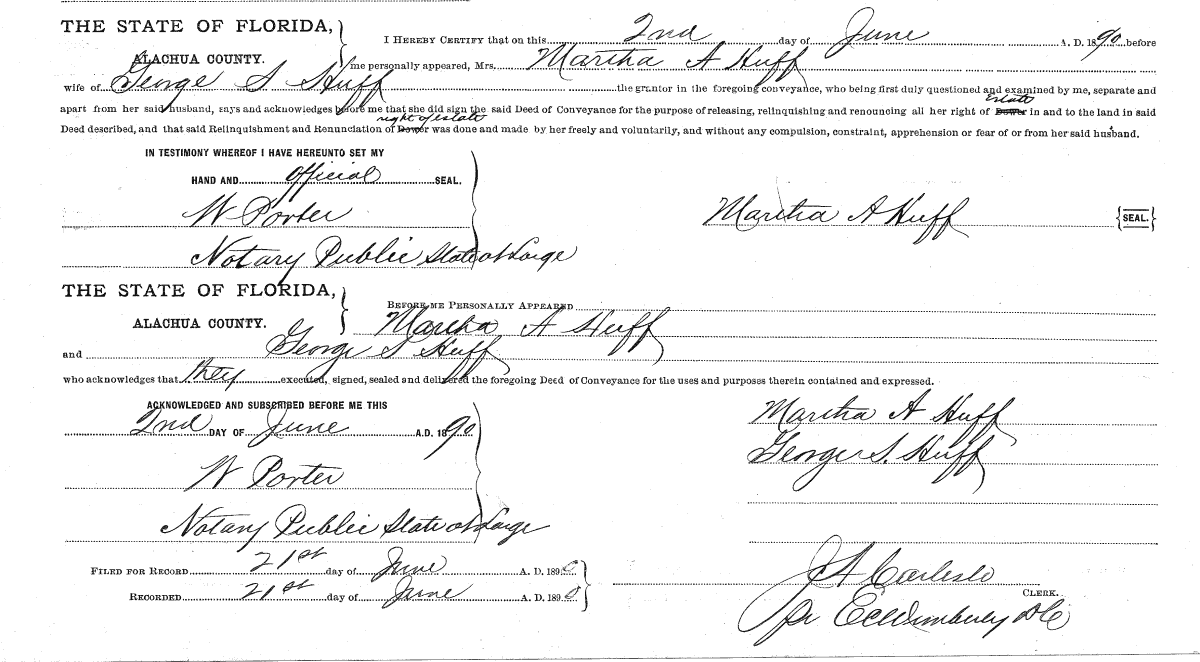 THE STATE OF FLORIDA,
ALACHUA COUNTY.
I HEREBY CERTIFY that on this 2nd day of June A. D. 1890 before
me personally appeared, Mrs. Martha A Huff
wife of George S Huff the grantor in the foregoing conveyance, who being first duly questioned and examined by me, separate and
estate
apart from her said husband, says and acknowledges before me that she did sign the said Deed of Conveyance for the purpose of releasing, relinquishing and renouncing all her right of Dower in and to the land in said
right of estate
Deed described, and that said Relinquishment and Renunciation of Dower was done and made by her freely and voluntarily, and without any compulsion, constraint, apprehension or fear of or from her said husband.
IN TESTIMONY WHEREOF I HAVE HEREUNTO SET MY
HAND AND official SEAL.
W Porter
Martha A Huff {SEAL.}
Notary Public State at Large
THE STATE OF FLORIDA,
ALACHUA COUNTY.
BEFORE ME PERSONALLY APPEARED
Martha A Huff
and George S Huff
who acknowledges that they executed, signed, sealed and delivered the foregoing Deed of Conveyance for the uses and purposes therein contained and expressed.
ACKNOWLEDGED AND SUBSCRIBED BEFORE ME THIS
2nd DAY OF June A.D. 1890
Martha A Huff
George S. Huff
W Porter
Notary Public State at Large
FILED FOR RECORD 21st day of June A. D. 1890
RECORDED 21st day of June A. D. 1890
J A Carlisle
CLERK.
pr E C Wimberly D C